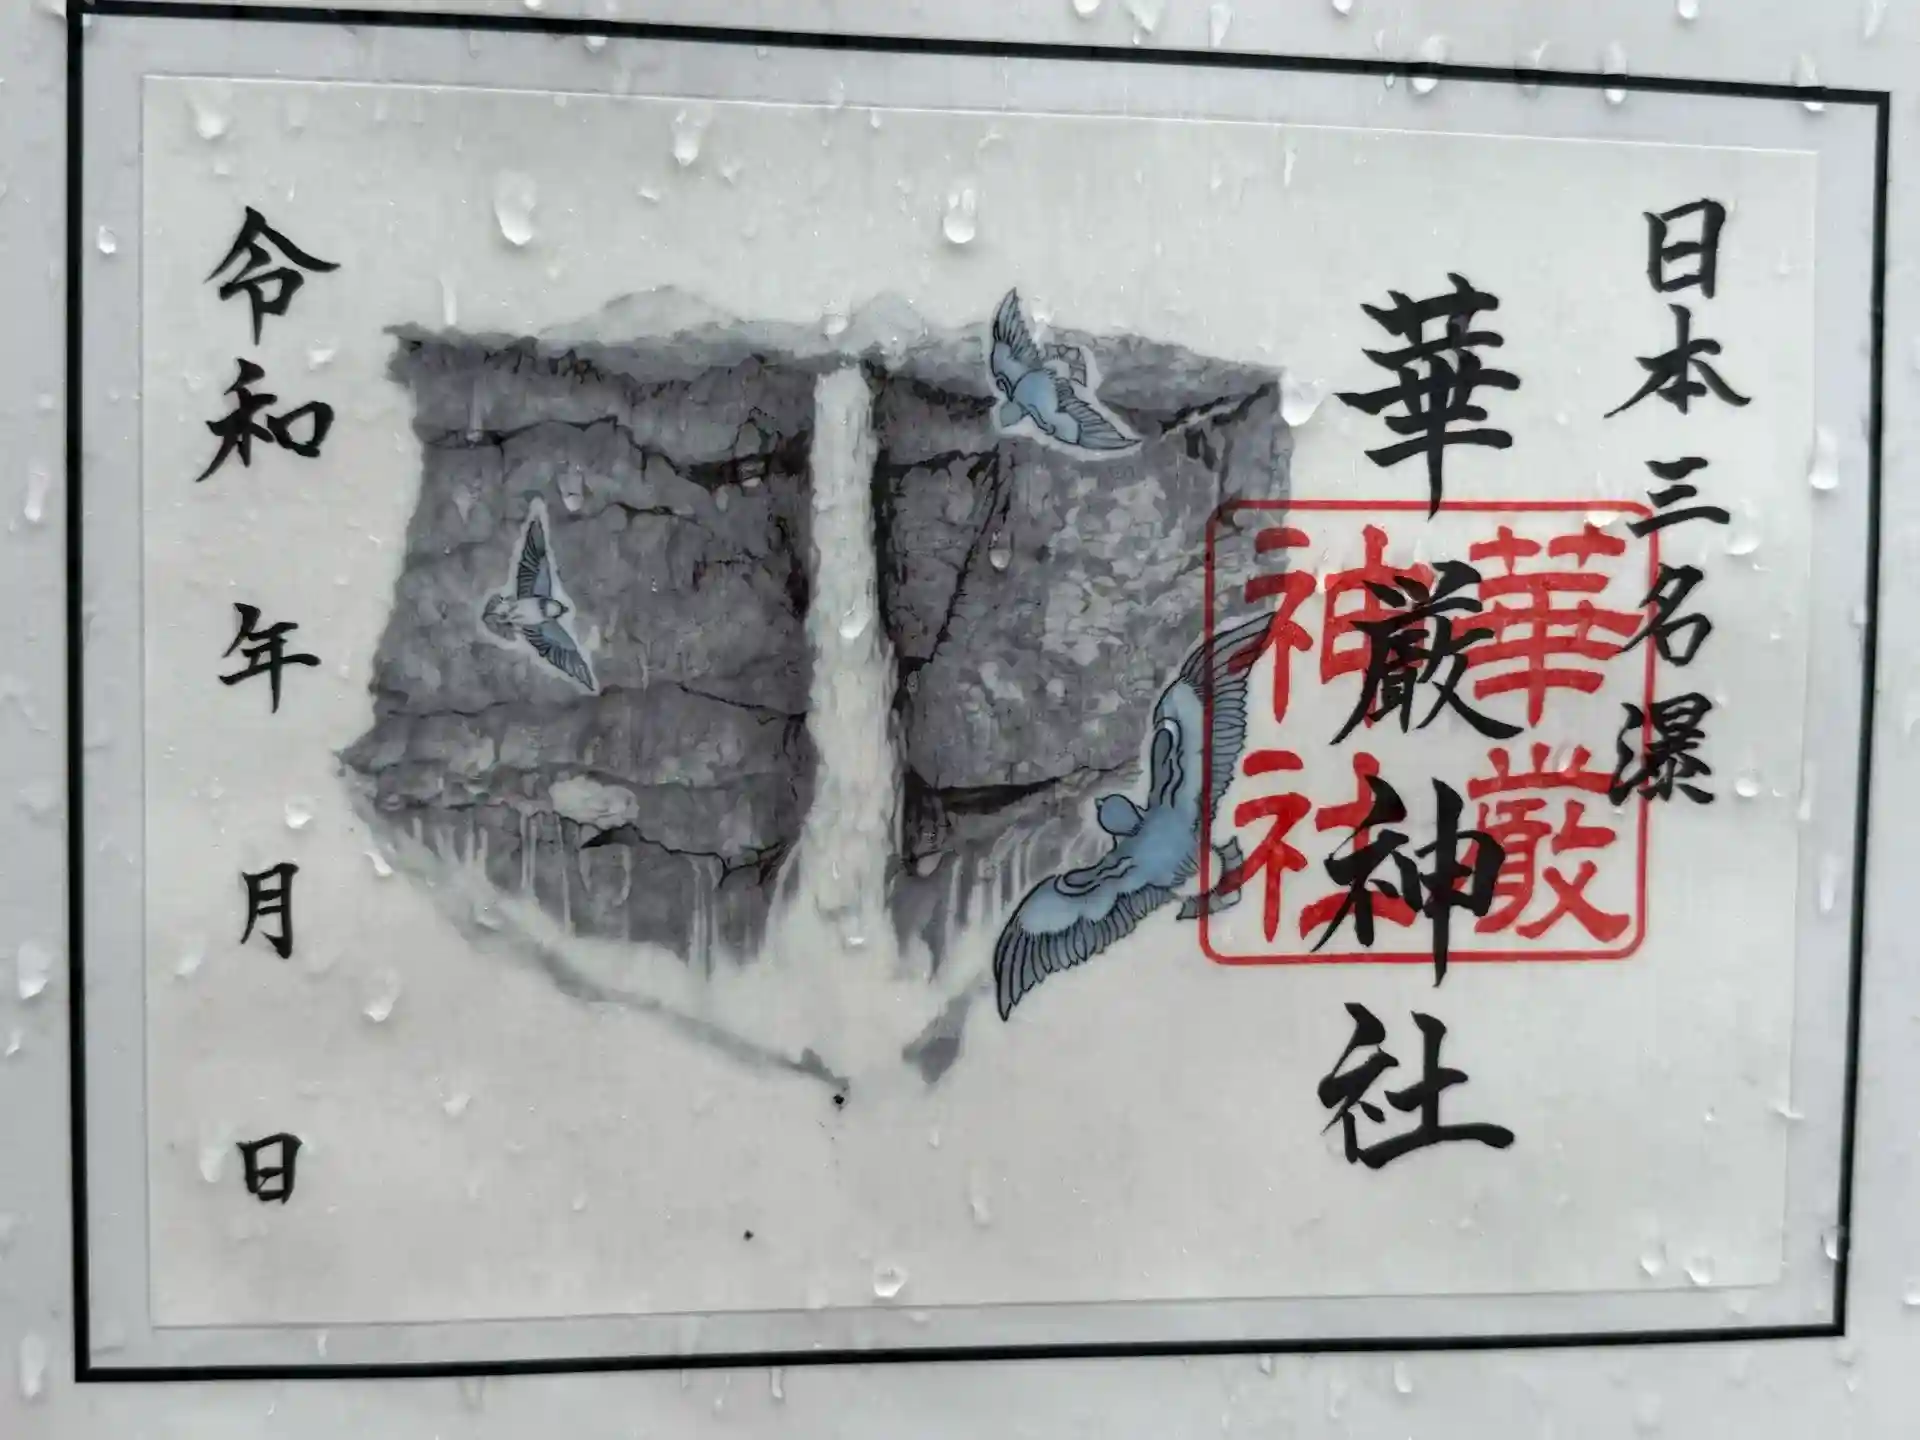 日本三名瀑
華厳神社
華嚴
神社
令和 年 月 日